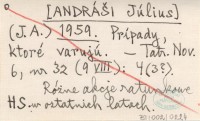 [ANDRÁŠI Július]
(J.A.) 1959. Prípady,
ktoré varujú. — Tatr. Nov.
6, nr 32 (9 VIII): 4 (3?)
Różne akcje ratunkowe
HS. w ostatnich latach.